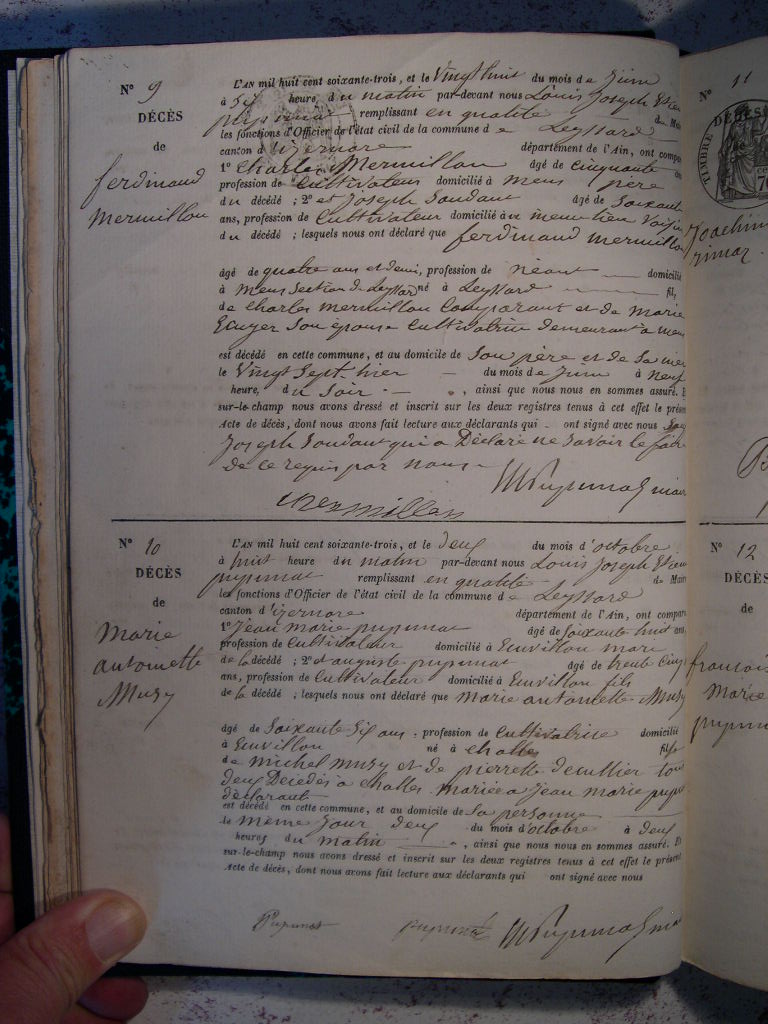 N° 9
DÉCÈS
de
ferdinand
Mermillon
L'AN mil huit cent soixante-trois, et le Vingt huit du mois de Juin
à Six heure, du matin par-devant nous Louis Joseph
pupunat remplissant en qualité de Mair
les fonctions d'Officier de l'état civil de la commune de Leyssard
canton d'izernore département de l'Ain, ont compar
1° Charles Mermillon âgé de cinquante
profession de Cultivateur domicilié à mens père
du décédé ; 2° et Joseph Soudant âgé de Soixante
ans, profession de Cultivateur domicilié au meme lieu Voisin
du décédé ; lesquels nous ont déclaré que ferdinand mermillon
âgé de quatre ans et demi, profession de néant domicilié
à mens section de Leyssard né à Leyssard fils
de Charles mermillon Comparant et de marie
Ecuyer Son épouse Cultivatrice demeurant à mens
est décédé en cette commune, et au domicile de Son père et de Sa mère
le Vingt Sept hier du mois de Juin à neuf
heure, du Soir, ainsi que nous nous en sommes assuré. E
sur-le-champ nous avons dressé et inscrit sur les deux registres tenus à cet effet le prése
Acte de décès, dont nous avons fait lecture aux déclarants qui ont signé avec nous
Joseph Soudant qui a Déclaré ne Savoir le faire
de ce requis par nous
Mermillon
N° 10
DÉCÈS
de
Marie
antoinette
Musy
L'AN mil huit cent soixante-trois, et le deux du mois d'octobre
à huit heure du matin par-devant nous Louis Joseph
pupunat remplissant en qualité de Mair
les fonctions d'Officier de l'état civil de la commune de Leyssard
canton d'izernore département de l'Ain, ont compar
1° Jean marie pupunat âgé de Soixante huit ans,
profession de Cultivateur domicilié à Euvillon mari
de la décédé ; 2° et auguste pupunat âgé de trente Cinq
ans, profession de Cultivateur domicilié à Euvillon fils
de la décédé ; lesquels nous ont déclaré que marie antoinette Musy
âgé de Soixante Six ans, profession de Cultivatrice domicilié
à Euvillon né à challes fille
de michel musy et de pierrette decullier tous
deux Décédés à challes mariée à Jean marie pupun
déclarant
est décédé en cette commune, et au domicile de Sa personne
le même Jour deux du mois d'octobre à deux
heures du matin, ainsi que nous nous en sommes assuré. Et
sur-le-champ nous avons dressé et inscrit sur les deux registres tenus à cet effet le présent
Acte de décès, dont nous avons fait lecture aux déclarants qui ont signé avec nous
Pupunat pupunat
N° 11
TIMBRE
Joachim
N° 12
DÉCÈS
de
francois
Marie
pupun